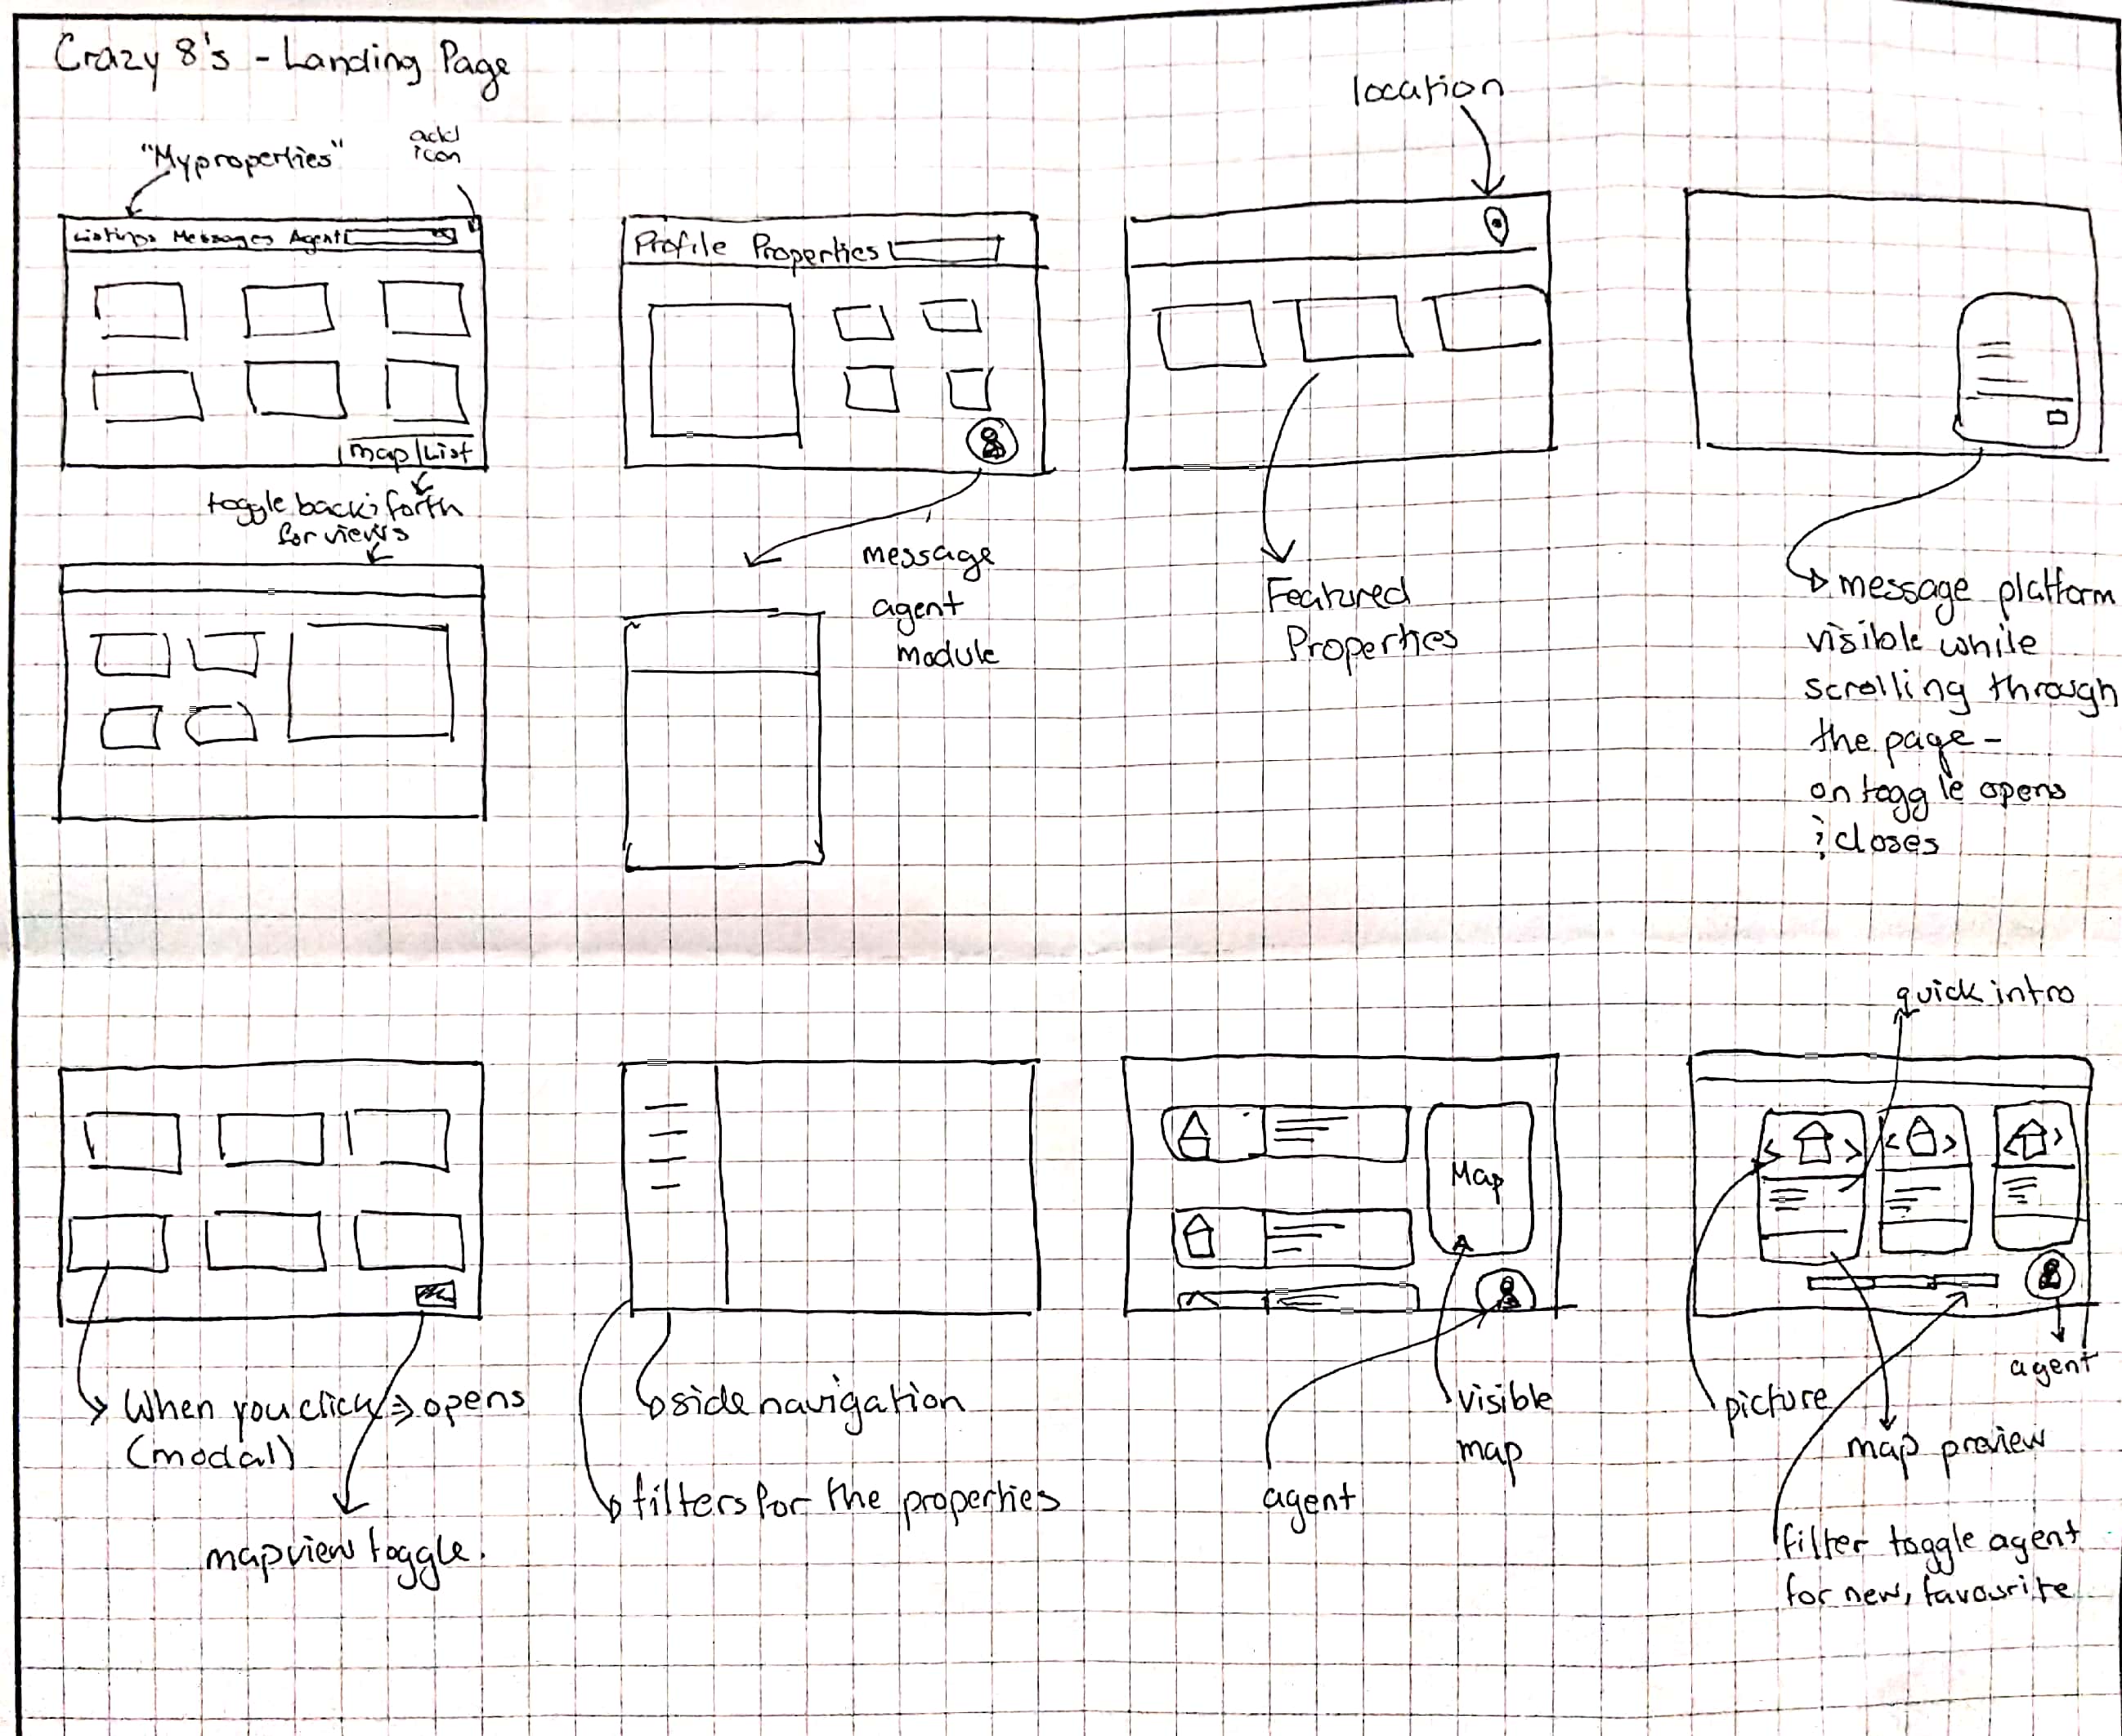 Crazy 8's - Landing Page
"My properties"
add
icon
Listings Messages Agent
map | List
toggle back & forth
for views
Profile Properties
message
agent
module
location
Featured
Properties
message platform
visible while
scrolling through
the page -
on toggle opens
& closes
When you click => opens
(modal)
map view toggle.
side navigation
filters for the properties
Map
agent
visible
map
quick intro
picture
map preview
agent
filter toggle agent
for new, favourite